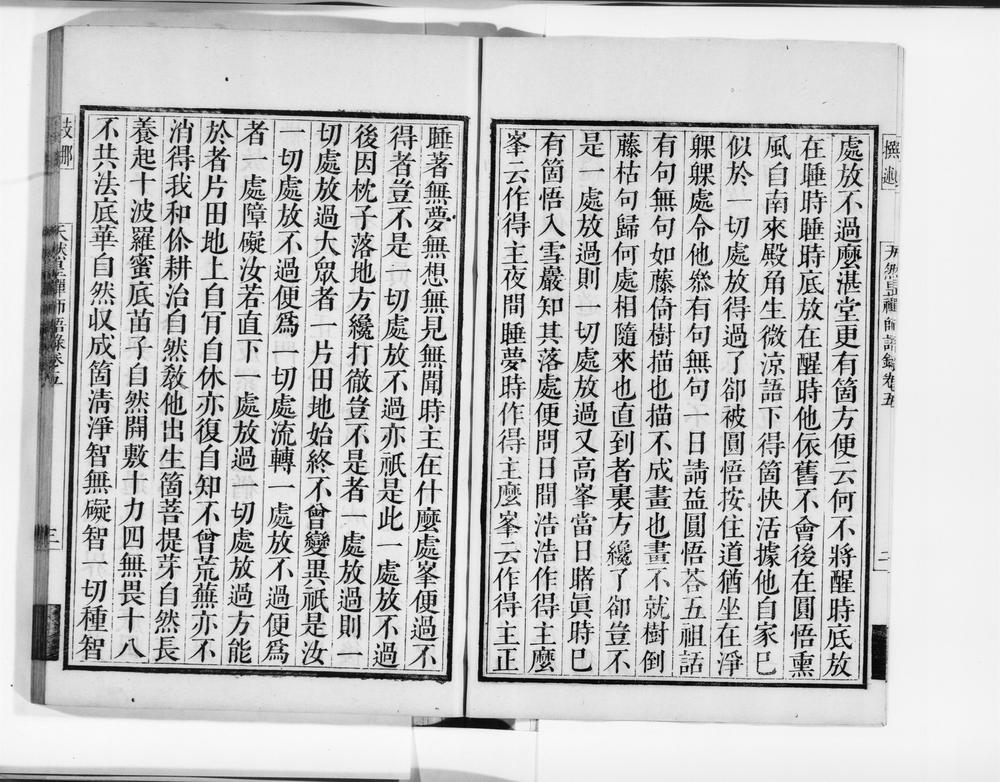 處放不過麼湛堂更有箇方便云何不將醒時底放
在睡時睡時底放在醒時他依舊不會後在圓悟熏
風自南來殿角生微涼語下得箇快活據他自家已
似於一切處放得過了卻被圓悟按住道猶坐在淨
躶躶處令他叅有句無句一日請益圓悟荅五祖話
有句無句如藤倚樹描也描不成畫也畫不就樹倒
藤枯句歸何處相隨來也直到者裏方纔了卻豈不
是一處放過則一切處放過又高峯當日睹眞時已
有箇悟入雪巖知其落處便問日間浩浩作得主麼
峯云作得主夜間睡夢時作得主麼峯云作得主正
睡著無夢無想無見無聞時主在什麼處峯便過不
得者豈不是一切處放不過亦祇是此一處放不過
後因枕子落地方纔打徹豈不是者一處放過則一
切處放過大眾者一片田地始終不曾變異祇是汝
一切處放不過便爲一切處流轉一處放不過便爲
者一處障礙汝若直下一處放過一切處放過方能
於者片田地上自肯自休亦復自知不曾荒蕪亦不
消得我和伱耕治自然敎他出生箇菩提芽自然長
養起十波羅蜜底苗子自然開敷十力四無畏十八
不共法底華自然収成箇淸淨智無礙智一切種智
天然昰禪師語錄卷五
二
天然昰禪師語錄卷五
三